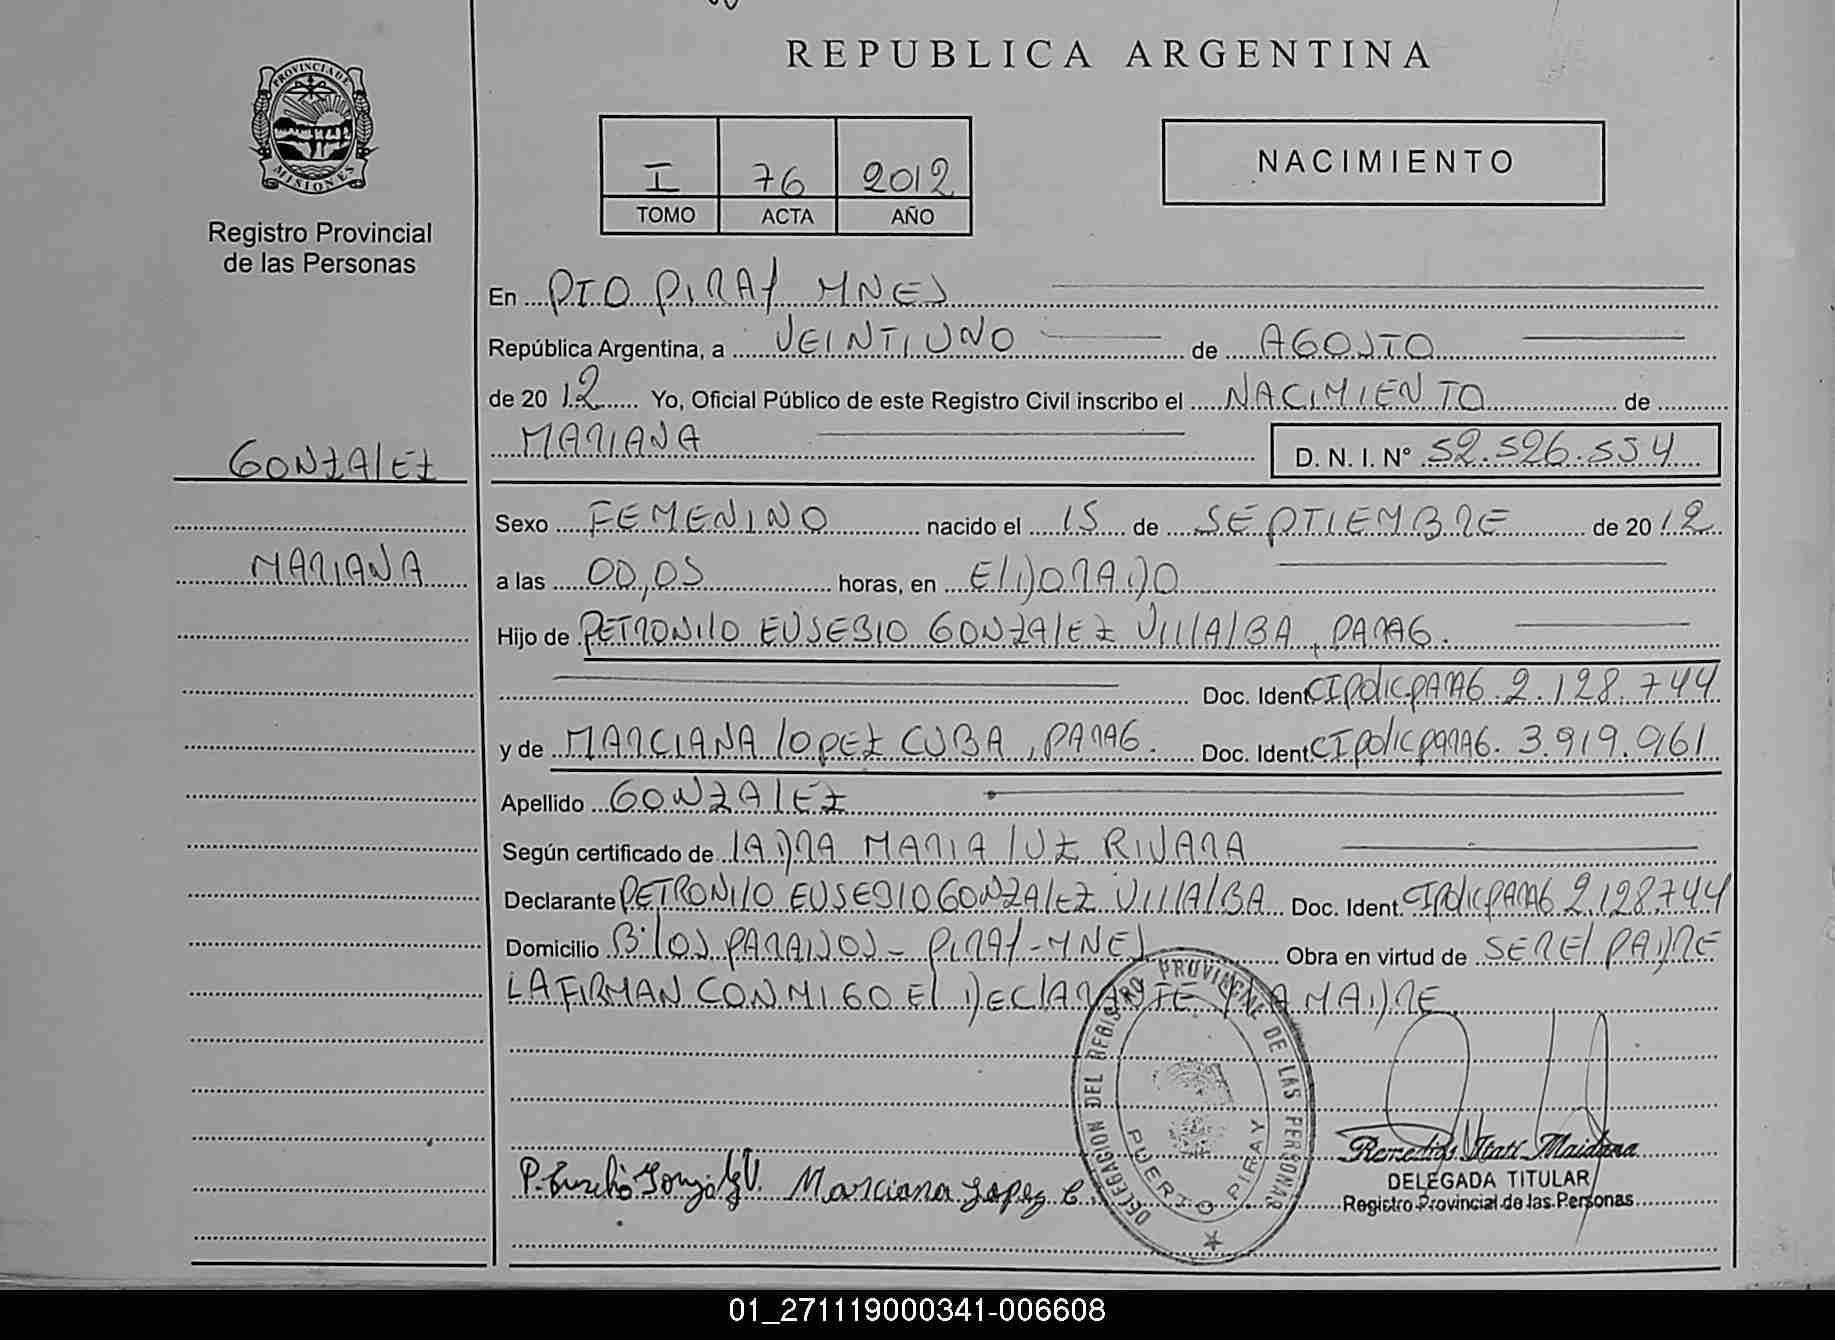 REPUBLICA ARGENTINA
PROVINCIA DE MISIONES
Registro Provincial
de las Personas
I 76 2012
TOMO ACTA AÑO
NACIMIENTO
En PTO PIRAY MNES
República Argentina, a VEINTIUNO de AGOSTO
de 2012 Yo, Oficial Público de este Registro Civil inscribo el NACIMIENTO de
MARIANA D. N. I. N° 52.526.554
GONZALEZ
Sexo FEMENINO nacido el 15 de SEPTIEMBRE de 2012
MARIANA
a las 00,05 horas, en ElDORADO
Hijo de PETRONIlO EUSEBIO GONZAlEZ VIllAlBA, PARAG.
Doc. Ident CI polic PARAG. 2.128.744
y de MARCIANA lOpEZ CUBA, PARAG. Doc. Ident CI polic PARAG. 3.919.961
Apellido GONZAlEZ
Según certificado de lADRA MARIA lUZ RIVARA
Declarante PETRONIlO EUSEBIO GONZAlEZ VIllAlBA Doc. Ident. CI Polic PARAG 2.128.744
Domicilio B: lOS PARAISOS - PIRAY - MNES Obra en virtud de SER El PADRE
LA FIRMAN CONMIGO El DEClARANTE Y LA MADRE
DELEGACION DEL REGISTRO PROVINCIAL DE LAS PERSONAS
PUERTO PIRAY
P. Eusebio Gonzalez V. Marciana Lopez C.
Remedios Itatí Maidana
DELEGADA TITULAR
Registro Provincial de las Personas
01_271119000341-006608